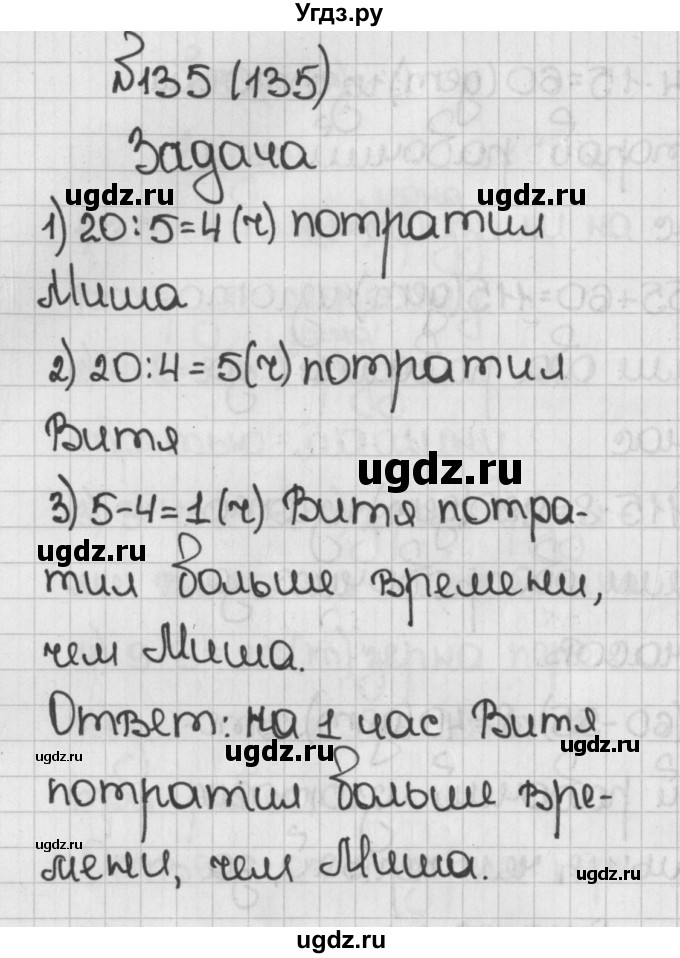 Угдз.ру
№135 (135)
Задача
ugdz.ru ugdz.ru
1) 20:5=4 (ч) потратил
ugdz.ru
Миша
2) 20:4=5(ч) потратил
ugdz.ru
Витя
ugdz.ru
3) 5-4=1(ч) Витя потра-
ugdz.ru
тил больше времени,
ugdz.ru
чем Миша.
Ответ: на 1 час Витя
ugdz.ru ugdz.ru ugdz.ru
потратил больше вре-
ugdz.ru
мени, чем Миша.
ugdz.ru
ugdz.ru